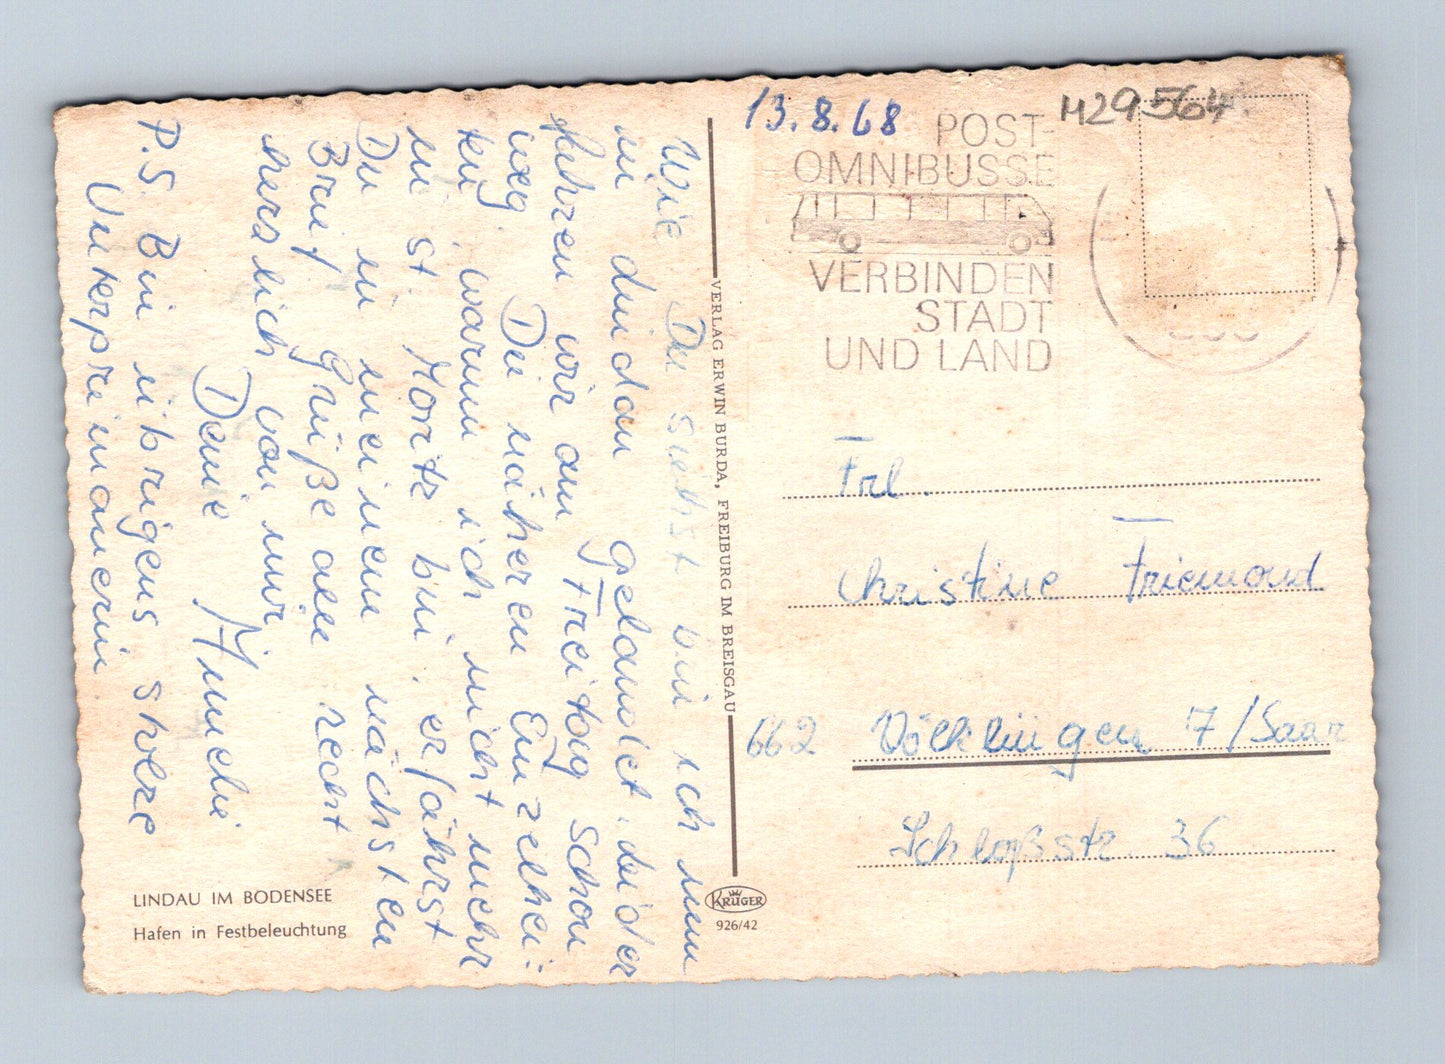 13.8.68
M29564.
POST-
OMNIBUSSE
VERBINDEN
STADT
UND LAND
Wie Du siehst bin ich nun
in Lindau gelandet. Leider
fuhren wir am Freitag schon
weg. Die näheren Einzelhei-
ten, warum ich nicht mehr
in St. Moritz bin, erfährst
Du in meinem nächsten
Brief. Grüße allen recht
herzlich von mir
Deine
P.S. Bin übrigens stolze
Unterprimanerin.
VERLAG ERWIN BURDA, FREIBURG IM BREISGAU
KRÜGER
926/42
Frl.
Christine Friemond
662 Völklingen 7/Saar
Schloßstr. 36
LINDAU IM BODENSEE
Hafen in Festbeleuchtung